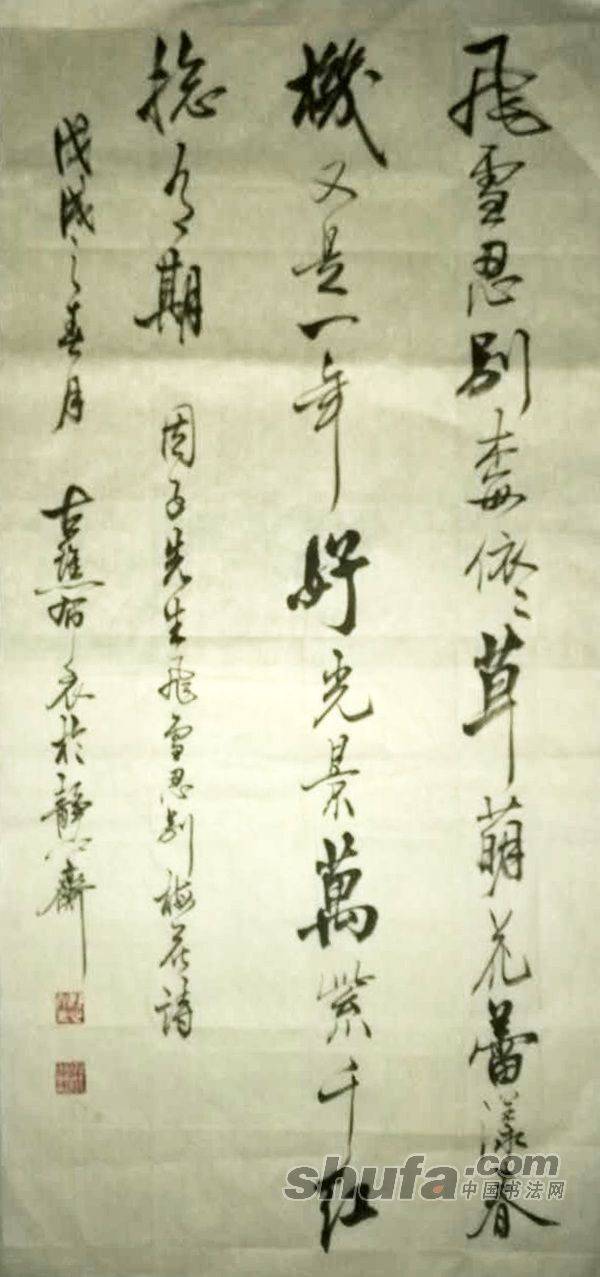 飛雪忍别梅依々草萌花蕾漾春
機又是一年好光景萬紫千红
總有期 因子先生飛雪忍别梅花詩
戊戌之春月 古譙 於靜心齋
shufa.com
中国书法网